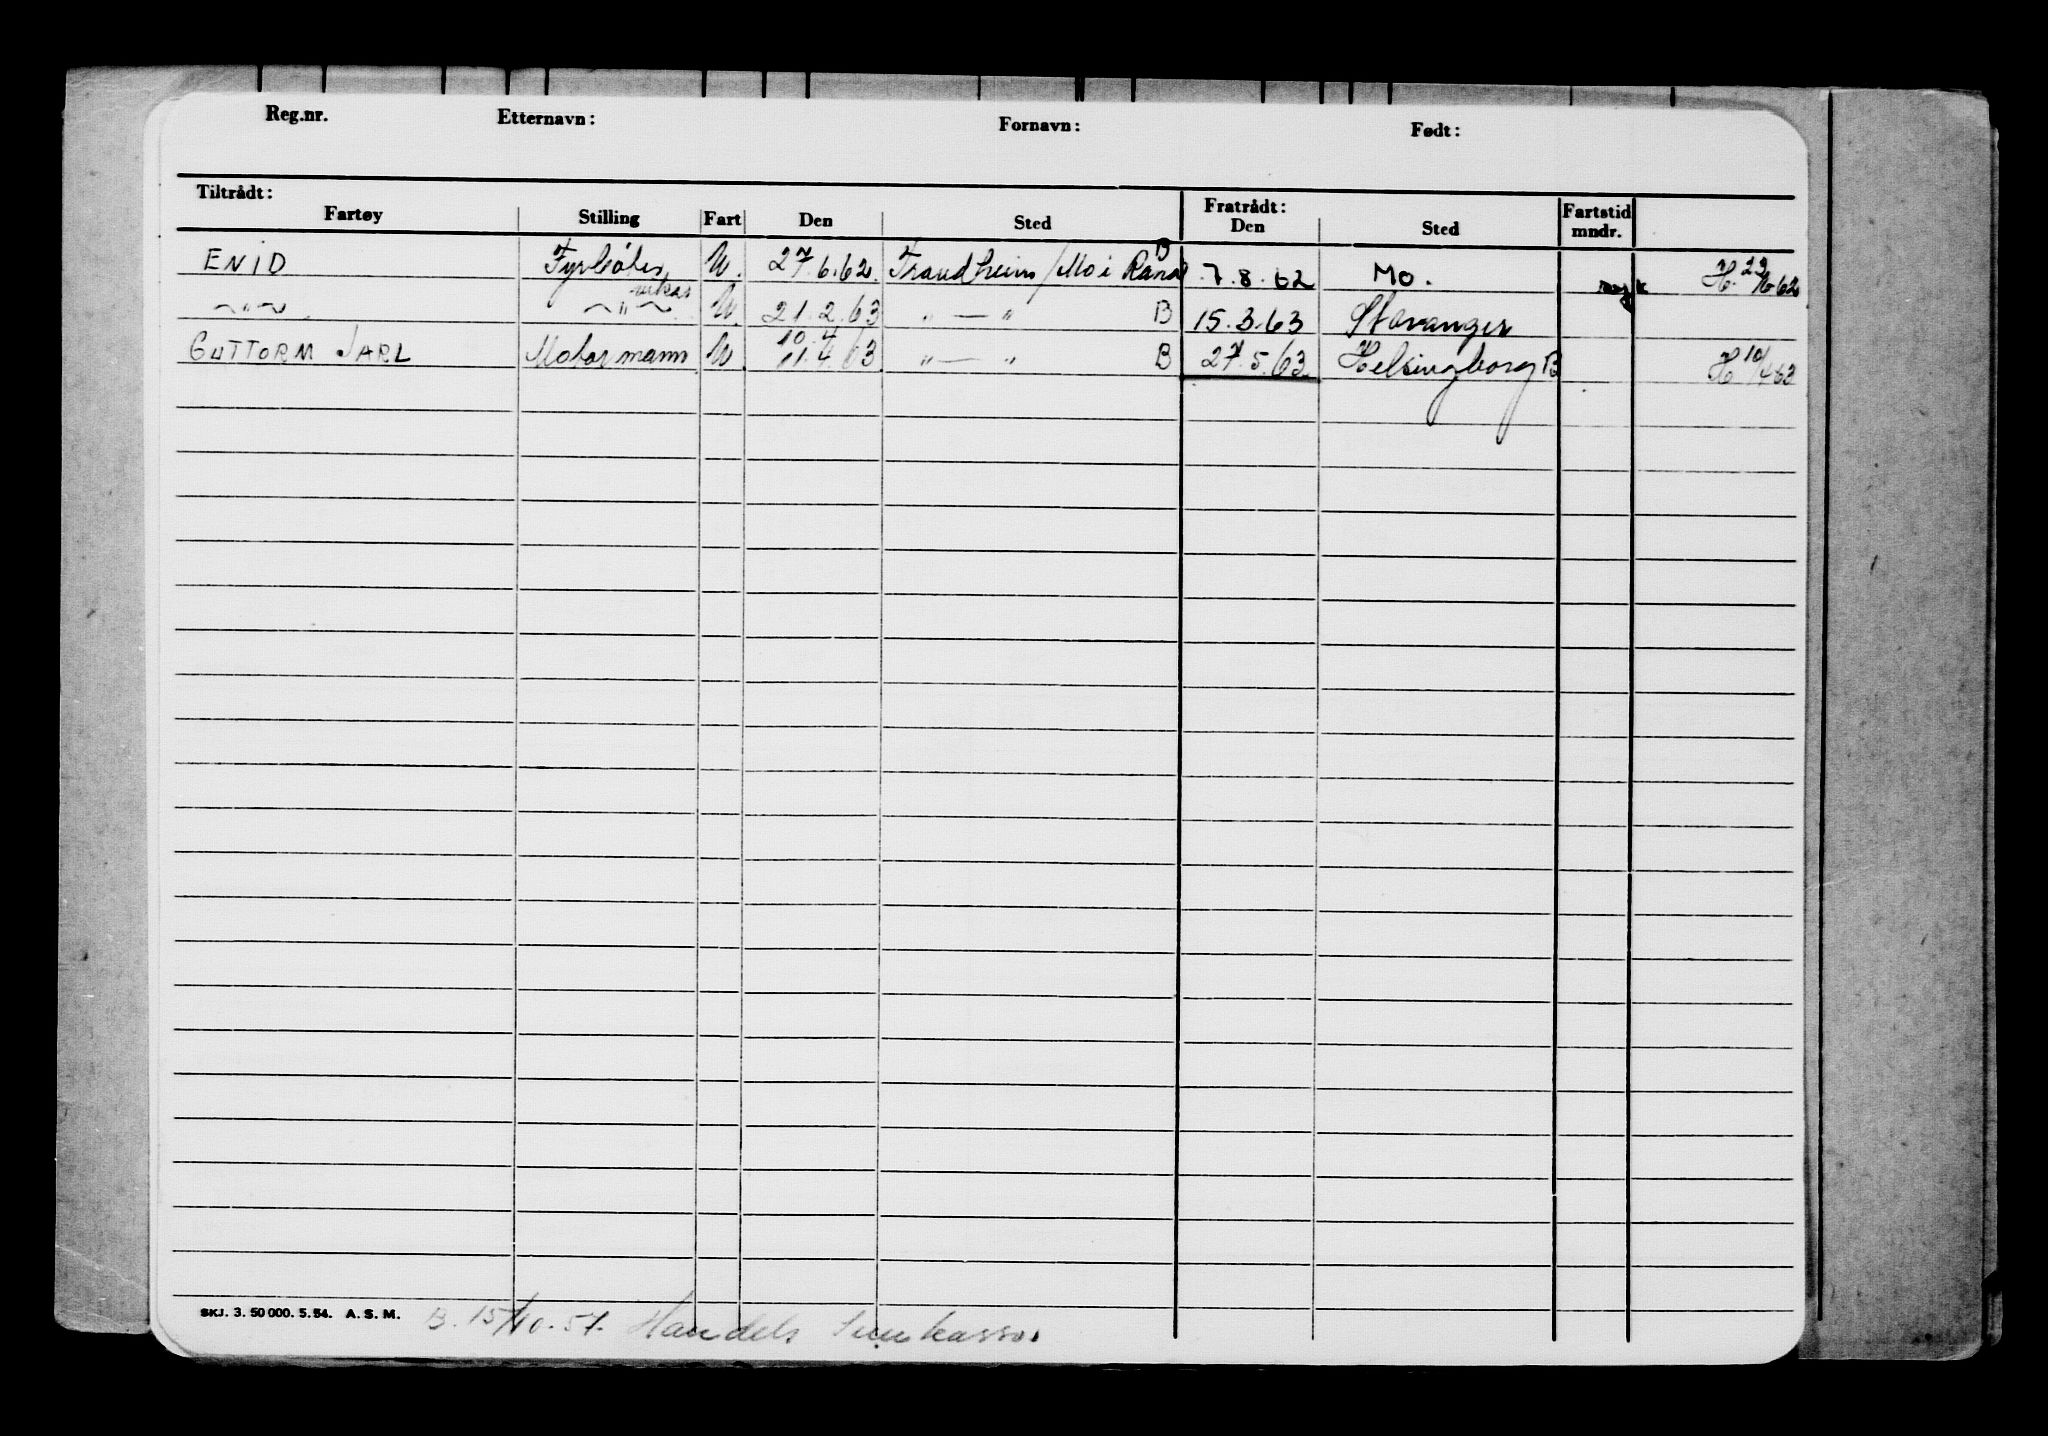 Reg.nr. Etternavn: Fornavn: Født:
Tiltrådt: Fratrådt:
Fartøy Stilling Fart Den Sted Den Sted Fartstid mndr.
ENID Fyrbøter U. 27.6.62. Trondheim/Mo i Rana B 7.8.62 Mo. H. 62
〃 〃 U. 21.2.63 〃 — 〃 B 15.3.63 Stavanger
10.4
GUTTORM JARL Motormann U. 11.4.63 〃 — 〃 B 27.5.63 Helsingborg B H 10/4 63
SKJ. 3. 50 000. 5. 54. A. S. M. B. 15/10.57. Handels Innkasso.